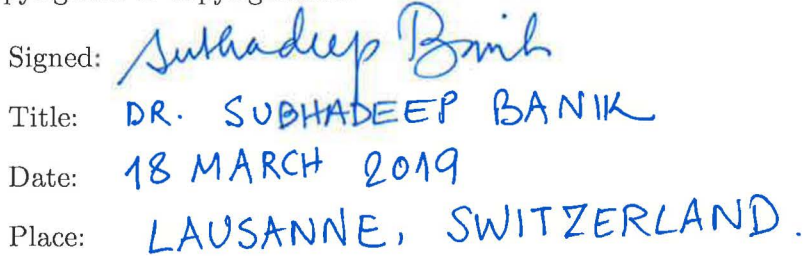 Signed: Subhadeep Banik
Title: DR. SUBHADEEP BANIK
Date: 18 MARCH 2019
Place: LAUSANNE, SWITZERLAND.